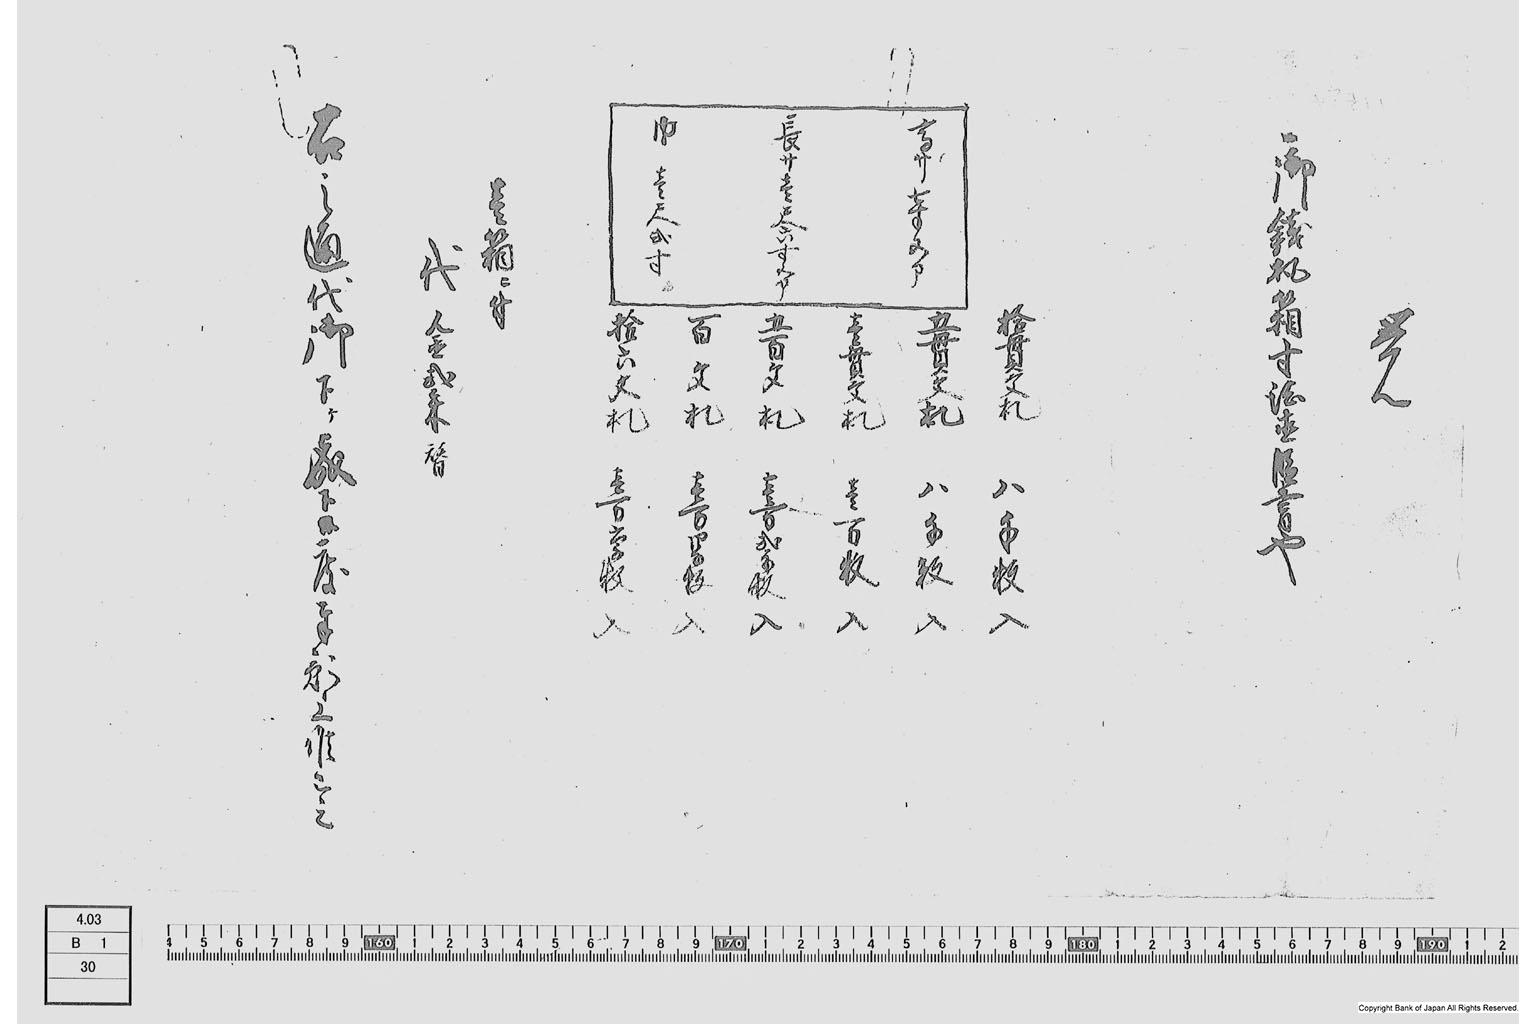 覚
一御銭札箱寸法直段書也
高サ七寸五分
長サ壱尺六寸五分
巾 壱尺弐寸
拾貫文札 八千枚 入
五貫文札 八千枚 入
壱貫文札 壱百枚 入
五百文札 入
百文札 入
拾六文札 入
壱箱ニ付
代 金弐朱替
右之通代御下ケ被下度奉願上候
4.03
B 1
30
4 5 6 7 8 9 160 1 2 3 4 5 6 7 8 9 170 1 2 3 4 5 6 7 8 9 180 1 2 3 4 5 6 7 8 9 190 1 2
Copyright Bank of Japan All Rights Reserved.